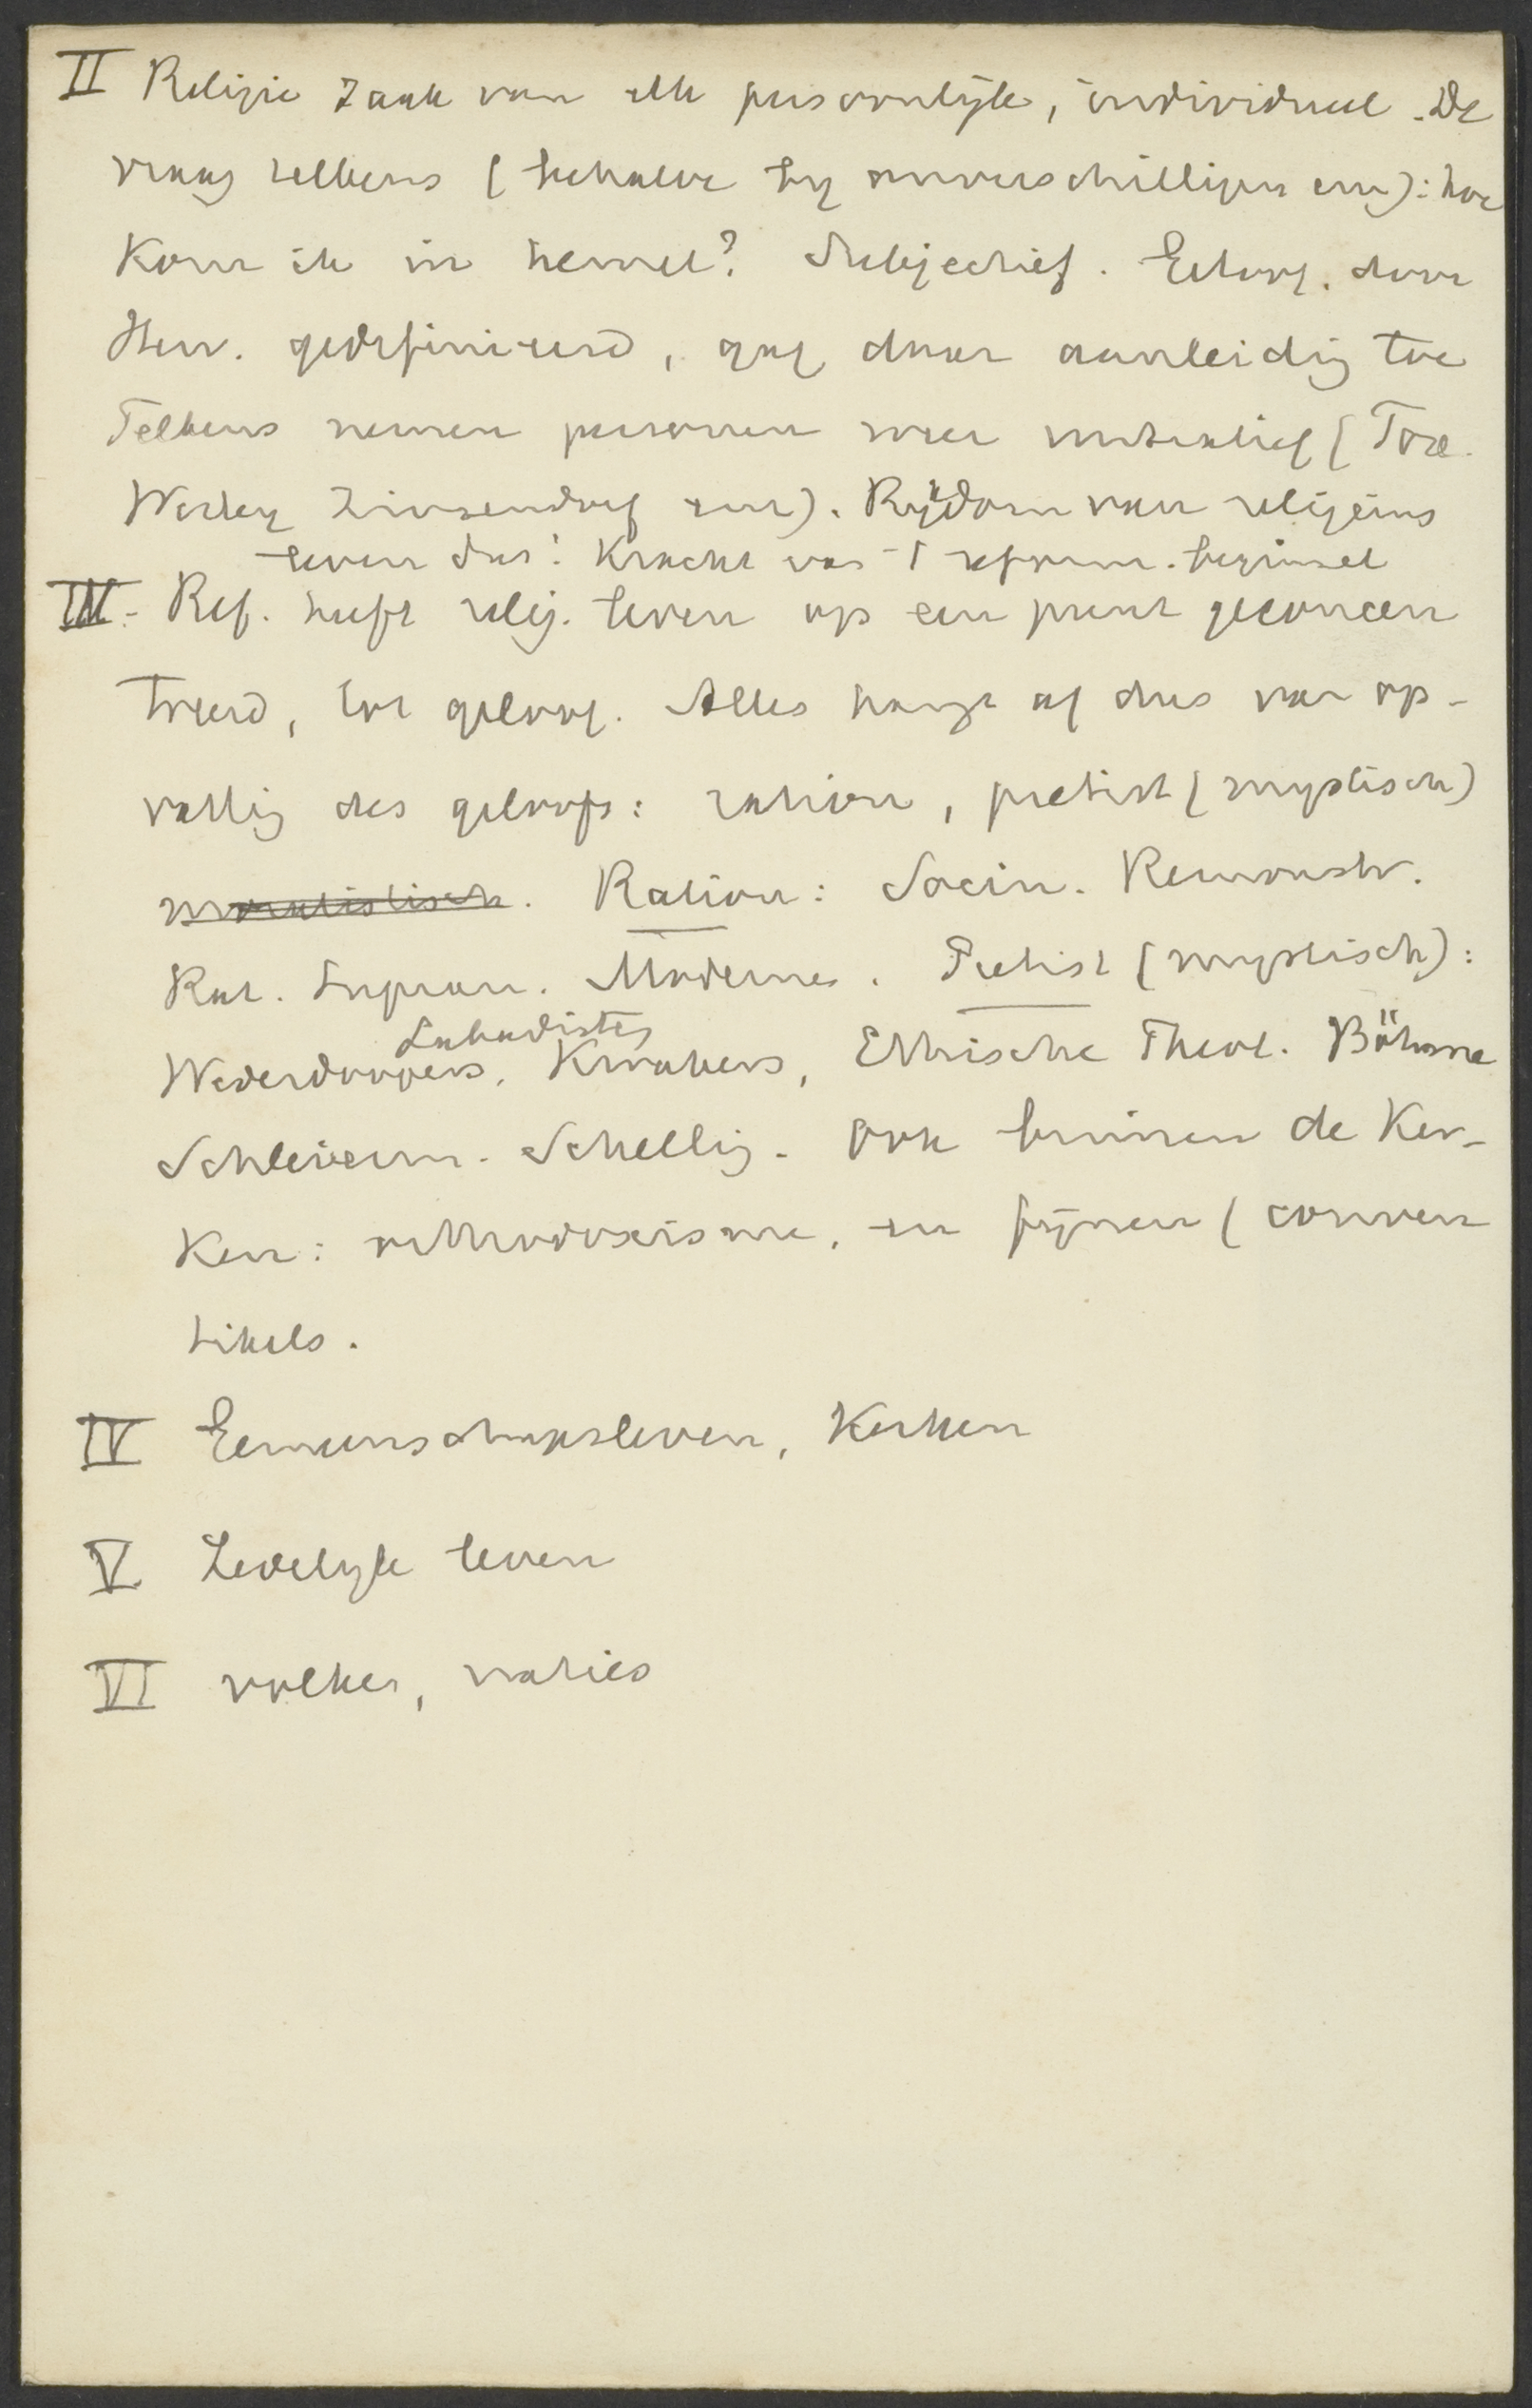 II Religie zaak van elk persoonlijk, individueel. De
vraag telkens (behalve by onverschilligen enz): hoe
Kom ik in hemel? Subjectief. Geloof. door
Herv. gedefinieerd, gaf daar aanleidig toe
Telkens nemen personen weer initiatief (
Wesley Zinzendorf enz). Rijkdom van religieus
leven dus! Kracht van 't reform. beginsel
III. Ref. heeft relig. leven op een punt geconcen
treerd, het geloof. Alles hangt af dus van op-
vattig des geloofs: ration, pietist (mystisch)
moralistisch. Ration: Socin. Remonstr.
Rat. Supran. Modernes. Pietist (mystisch):
Labadisten
Wederdoopers, Kwakers, Ethische Theol. Böhme
Schleierm. Schellig. Ook binnen de Ker-
Ken: orthodoxisme, en fijnen (conven
tikels.
IV Gemeenschapsleven, Kerken
V Zedelyk leven
VI volken, naties